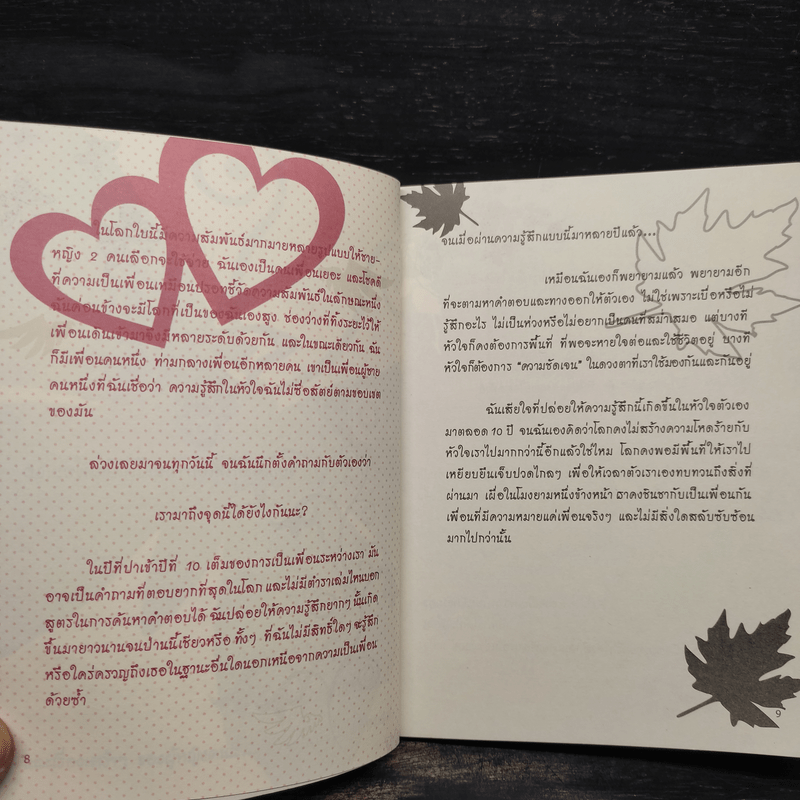 ในโลกใบนี้มีความสัมพันธ์มากมายหลายรูปแบบให้ชาย-
หญิง 2 คนเลือกจะใช้ง่าย ฉันเองเป็นคนเพื่อนเยอะ และโชคดี
ที่ความเป็นเพื่อนเหมือนปรอทชี้วัดความสัมพันธ์ในลักษณะหนึ่ง
ฉันค่อนข้างจะมีโลกที่เป็นของฉันเองสูง ช่องว่างที่ทิ้งระยะไว้ให้
เพื่อนเดินเข้ามาจึงมีหลายระดับด้วยกัน และในขณะเดียวกัน ฉัน
ก็มีเพื่อนคนหนึ่ง ท่ามกลางเพื่อนอีกหลายคน เขาเป็นเพื่อนผู้ชาย
คนหนึ่งที่ฉันเชื่อว่า ความรู้สึกในหัวใจฉันไม่ซื่อสัตย์ตามขอบเขต
ของมัน
ล่วงเลยมาจนทุกวันนี้ จนฉันนึกตั้งคำถามกับตัวเองว่า
เรามาถึงจุดนี้ได้ยังไงกันนะ?
ในปีที่ปาเข้าปีที่ 10 เต็มของการเป็นเพื่อนระหว่างเรา มัน
อาจเป็นคำถามที่ตอบยากที่สุดในโลก และไม่มีตำราเล่มไหนบอก
สูตรในการค้นหาคำตอบได้ ฉันปล่อยให้ความรู้สึกยากๆ นั้นเกิด
ขึ้นมายาวนานจนป่านนี้เชียวหรือ ทั้งๆ ที่ฉันไม่มีสิทธิ์ใดๆ จะรู้สึก
หรือใคร่ครวญถึงเธอในฐานะอื่นใดนอกเหนือจากความเป็นเพื่อน
ด้วยซ้ำ
8
จนเมื่อผ่านความรู้สึกแบบนี้มาหลายปีแล้ว...
เหมือนฉันเองก็พยายามแล้ว พยายามอีก
ที่จะตามหาคำตอบและทางออกให้ตัวเอง ไม่ใช่เพราะเบื่อหรือไม่
รู้สึกอะไร ไม่เป็นห่วงหรือไม่อยากเป็นคนที่สม่ำเสมอ แต่บางที
หัวใจก็คงต้องการพื้นที่ ที่พอจะหายใจต่อและใช้ชีวิตอยู่ บางที
หัวใจก็ต้องการ "ความชัดเจน" ในดวงตาที่เราใช้มองกันและกันอยู่
ฉันเสียใจที่ปล่อยให้ความรู้สึกนี้เกิดขึ้นในหัวใจตัวเอง
มาตลอด 10 ปี จนฉันเองคิดว่าโลกคงไม่สร้างความโหดร้ายกับ
หัวใจเราไปมากกว่านี้อีกแล้วใช่ไหม โลกคงพอมีพื้นที่ให้เราไป
เหยียบยืนเจ็บปวดไกลๆ เพื่อให้เวลาตัวเราเองทบทวนถึงสิ่งที่
ผ่านมา เผื่อในโมงยามหนึ่งข้างหน้า ฮาคงชินชากับเป็นเพื่อนกัน
เพื่อนที่มีความหมายแค่เพื่อนจริงๆ และไม่มีสิ่งใดสลับซับซ้อน
มากไปกว่านั้น
9